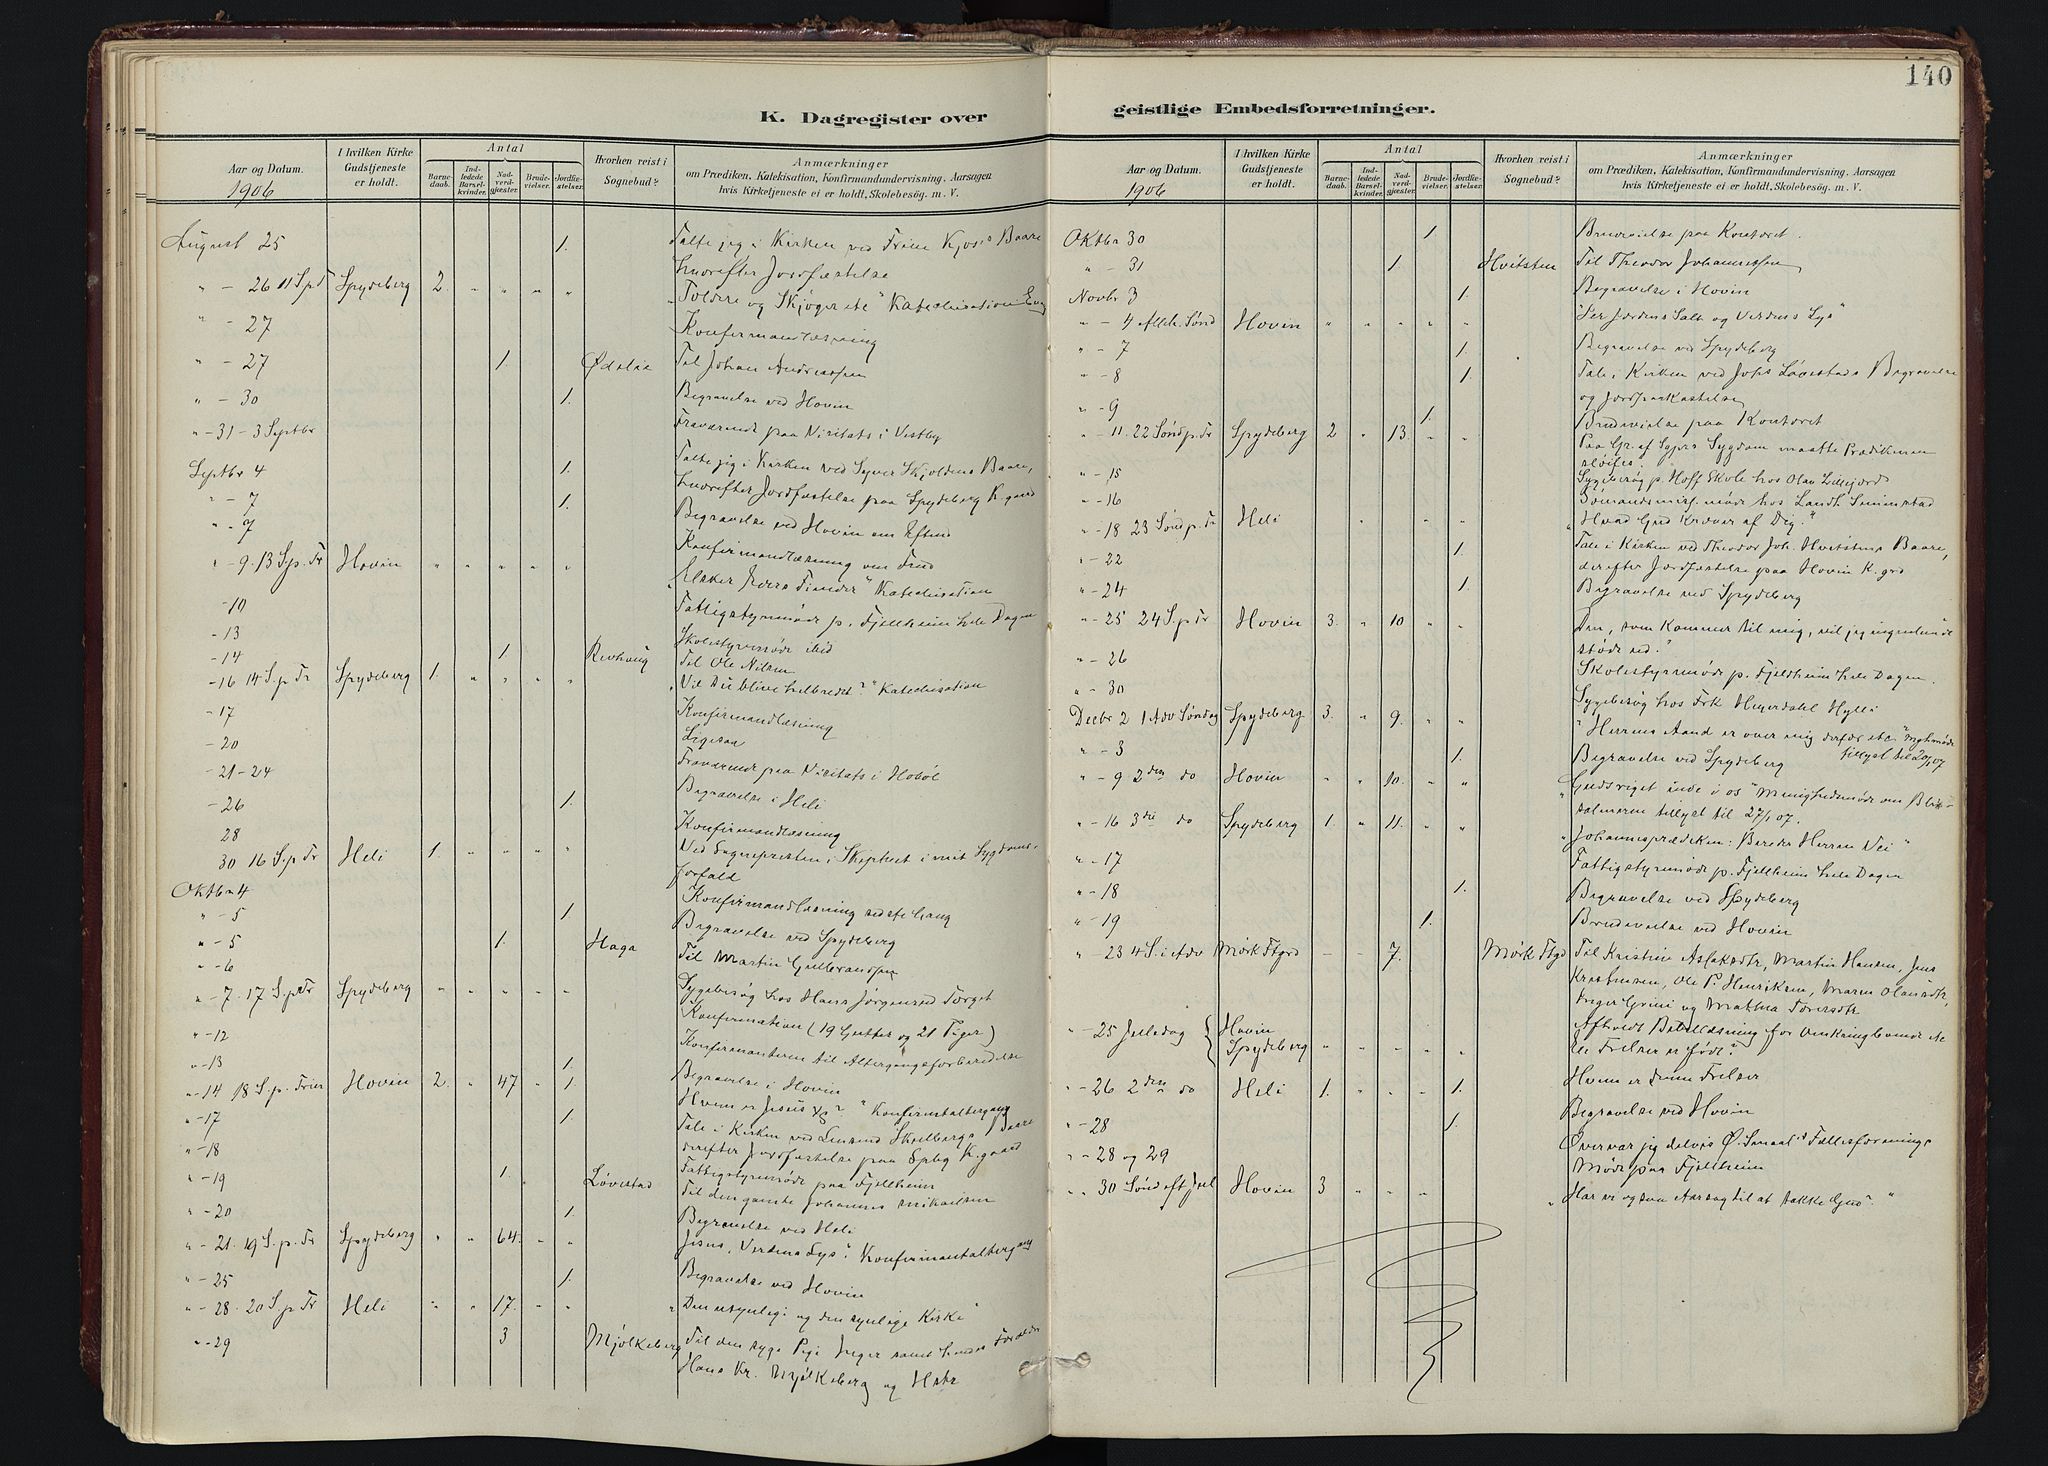 140
K. Dagregister over geistlige Embedsforretninger.
Aar og Datum. 1906
I hvilken Kirke Gudstjeneste er holdt.
Antal
Barnedaab.
Indledede Barselkvinder.
Nadverdgjester.
Brudevielser.
Jordfæstelser.
Hvorhen reist i Sognebud?
Anmærkninger
om Prædiken, Katekisation, Konfirmandundervisning, Aarsagen
hvis Kirketjeneste ei er holdt, Skolebesøg. m. V.
August 25 1. Talte jeg i Kirken ved Baare
hvorefter Jordfæstelse
" - 26 11 S p T Spydeberg 2. " " " " "Toldere og Skjøger etc" Katechisation
" - 27 Konfirmandlæsning
" - 27 1. Til Johan Andreassen
" - 30 1. Begravelse ved Hovin
" - 31 - 3 Septbr Fraværende paa Visitats i Vestby
Septbr 4 1. Talte jeg i Kirken ved Syver Skjoldens Baare,
hvorefter Jordfæstelse paa Spydeberg K.gaard
" - 7 1. Begravelse ved Hovin
" - 7 Konfirmandlæsning
" - 9. 13 S. p. Tr Hovin " " " " " "Elsker Eders Fiender" Katechisation
- 10 Fattigstyremøde p. Fjellheim hele Dagen
- 13 Skolestyremøde ibid
- 14 1 Til Ole Nilsen
- 16 14 S. p. Tr Spydeberg 1. " " " " "Vil du blive helbredet?" Katechisation
- 17 Konfirmandlæsning
- 20 Ligesaa
- 21-24 Fraværende paa Visitats i Hobøl
- 26 1. Begravelse i Heli
28 Konfirmandlæsning
30 16 S. p Tr Heli 1. " " " " Ved Sognepresten i Skiptvet i mit Sygdoms-
forfald
Oktbr 4 Konfirmandlæsning sidste Gang
" - 5 1. Begravelse ved Spydeberg
" - 5 1. Haga Til Martin Gulbrandsen
" - 6 Sygebesøg hos Hans Jørgensen Torget
" - 7. 17 S. p Tr Spydeberg " " " " " Konfirmation (19 Gutter og 21 Piger)
" - 12 Konfirmanterne til Altergangsforberedelse
" - 13 1. Begravelse i Hovin
" - 14 18 S. p. Hovin 2. " 47 " 1. Hvem er Jesus Xs? "
" - 17 1. Tale i Kirken ved Baare
derefter Jordfæstelse paa Spbg K.gaard
" - 18 Fattigstyremøde paa Fjellheim
" - 19 1. Løvestad Til den gamle Johannes Mikaelsen
" - 20 1. Begravelse ved Heli
" - 21. 19 S. p. Tr Spydeberg " " 64. " " Jesus "Verdens Lys". Konfirmantaltergang
" - 25 1. Begravelse ved Hovin
" - 28. 20 S. p Tr Heli " " 17. " " "Den usynlige og den synlige Kirke"
" - 29 3 Mjølkeberg Til den syge Pige Inger samt hendes Forældre
Hans Kr. Mjølkeberg og Hstr
Aar og Datum. 1906
I hvilken Kirke Gudstjeneste er holdt.
Antal
Barnedaab.
Indledede Barselkvinder.
Nadverdgjester.
Brudevielser.
Jordfæstelser.
Hvorhen reist i Sognebud?
Anmærkninger
om Prædiken, Katekisation, Konfirmandundervisning, Aarsagen
hvis Kirketjeneste ei er holdt, Skolebesøg. m. V.
Oktbr 30 1. Brudevielse paa Kontoret.
" - 31 1. Hvitsten Til Theodor Johannessen
Novbr 3 1. Begravelse i Hovin
" - 4 Alleh. Sønd Hovin " " " " " Jordens Salt og Verdens Lys"
" - 7 1. Begravelse ved Spydeberg
" - 8 1. Tale i Kirken ved Johs Løvestads Begravelse
og Jordpaakastelse
" - 9 1. Brudevielse paa Kontoret
" - 11. 22 Sønd p. Tr Spydeberg 2 " 13. " " Paa Gr. af Sygdom maatte Prædikenen
sløifes.
" - 15 Sygebesøg p. Hoff Skole hos Olav Lillejord
" - 16 Sømandsmis. møde hos Landh.
" - 18 23 Sønd p. Tr Heli " " " "Hvad Gud Kræver af Dig."
" - 22 1. Tale i Kirken ved Theodor Joh. Hvitstens Baare,
derefter Jordfæstelse paa Hovin K. grd
" - 24 1. Begravelse ved Spydeberg
" - 25 24 S. p Tr Hovin 3. " 10 " " Den, som kommer til mig, vil jeg ingenlunde
støde ud."
" - 26 Skolestyremøde p. Fjeldheim hele Dagen.
" - 30 Sygebesøg hos Frk Heyerdahl Hylli
Decbr 2 1 Adv Søndag Spydeberg 3. " 9. " " "Herrens Aand er over mig derfor etc"
tillyst til 20/1 07
" - 3 1. Begravelse ved Spydeberg
" - 9 2den do Hovin " " 10. " " "Gudsriget inde i os" Menighedsmøde om
salmerne tillyst til 27/1 07.
" - 16 3die do Spydeberg 1. " 11. " " "Johannesprædiken: Bereder Herren Vei"
" - 17 Fattigstyremøde p. Fjellheim hele Dagen
" - 18 1. Begravelse ved Spydeberg
" - 19 1. Brudevielse ved Hovin
" - 23 4 S. i Adv Mørk Ftgrd - - 7. Mørk Ftgd Til Kristine Aslaksdtr, Martin Hansen, Jens
Kristensen, Ole P. Henriksen, Maren Olausdtr,
Inger Grini og Mathea Toresdtr
Afholdt Bibellæsning for Omkringboende etc
" - 25 Juledag { Hovin Spydeberg " " " " " En Frelser er født"
" - 26 2den do Heli 1. " " " 1. Hvem er denne Frelser
Begravelse ved Hovin
" - 28 1.
" - 28 og 29 Overvar jeg delvis Ø. Smaal.s Fællesforenings
Møde paa Fjellheim
" - 30 Sønd eft Jul Hovin 3 " " " "Har vi ogsaa Aarsag til at takke Gud?"